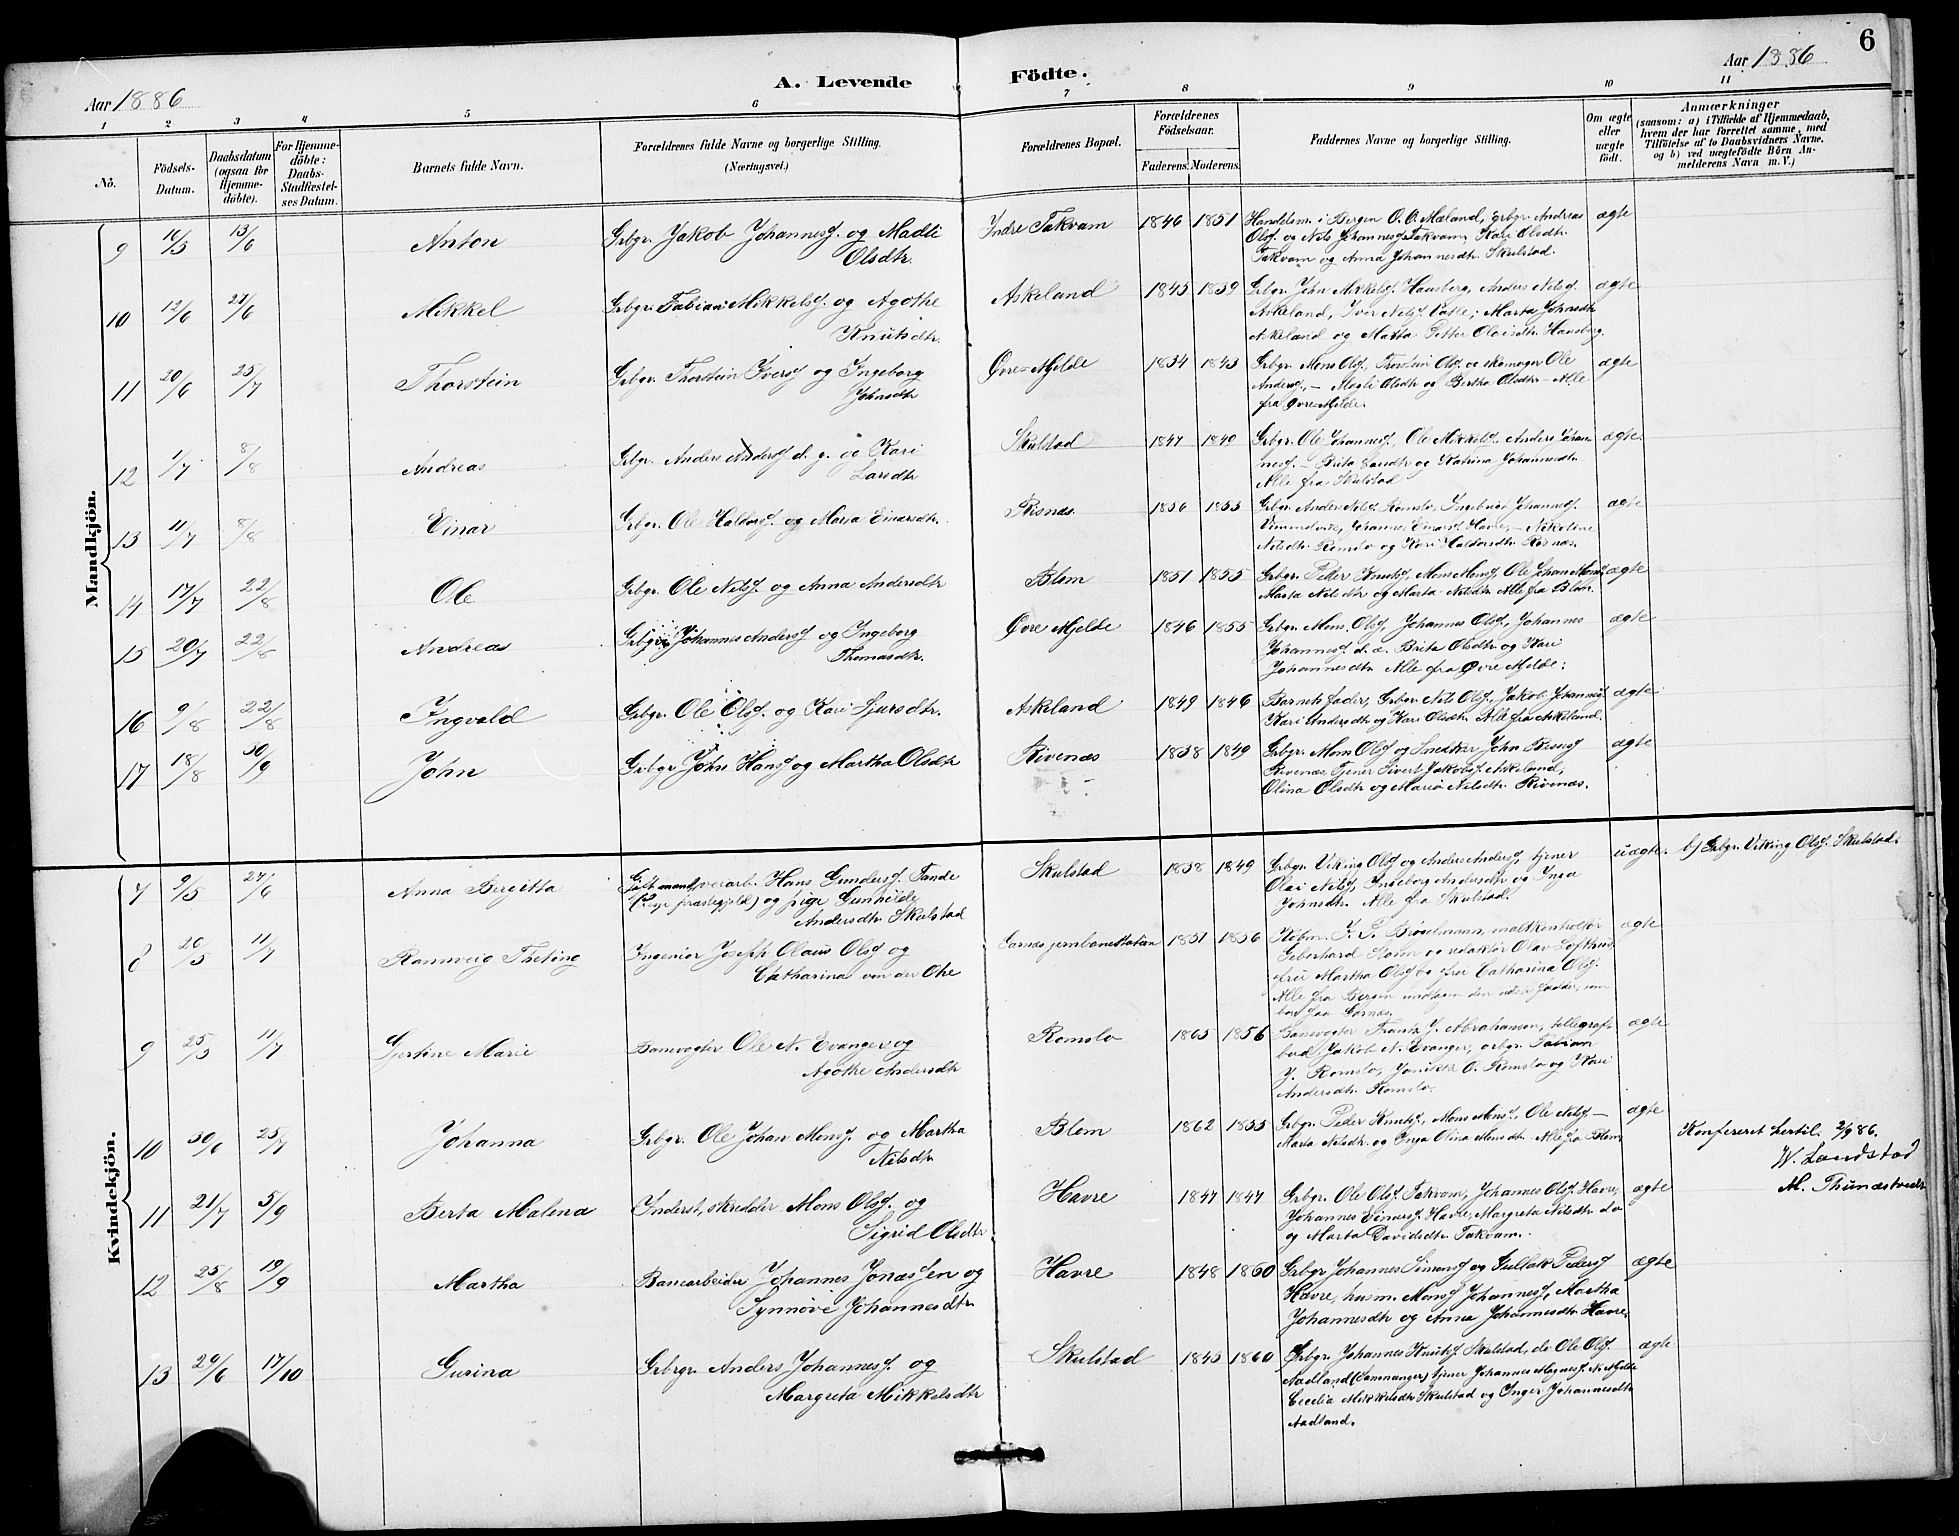 6
Aar 1886
A. Levende
Födte.
Aar 1886
1 2 3 4 5 6 7 8 9 10 11
No.
Födsels-Datum.
Daabsdatum (ogsaa for Hjemmedöbte).
For Hjemmedöbte: Daabs-Stadfæstelses Datum.
Barnets fulde Navn.
Forældrenes fulde Navne og borgerlige Stilling.
(Næringsvei.)
Forældrenes Bopæl.
Forældrenes Födselsaar.
Faderens. Moderens.
Faddernes Navne og borgerlige Stilling.
Om ægte eller uægte födt.
Anmærkninger
(saasom: a) i Tilfælde af Hjemmedaab,
hvem der har forrettet samme, med
Tilföielse af to Daabsvidners Navne,
og b) ved uægtefödte Börn An-
melderens Navn m. V.)
Mandkjön.
9 16/5 13/6 Anton Grbgr. Jakob Johanness. og Madli Olsdtr. Indre Takvam 1846 1851 Handelsm. i Bergen O. O. Mæland, grbgr. Andreas
Olss. og Nils Johanness. Takvam, Kari Olsdtr.
Takvam og Anna Johannesdtr. Skulstad. ægte
10 12/6 27/6 Mikkel Grbgr. Fabian Mikkels. og Agothe Knutsdtr. Askeland 1845 1859 Grbgr. John Mikkels. Hausberg, Anders Nilss.
Askeland, Iver Nilss. Vatle, Marta Johnsdtr.
Askeland og Olaisdtr. Hausberg. ægte
11 20/6 25/7 Thorstein Grbgr. Thorstein Iverss. og Ingeborg Johnsdtr. Øvre-Mjelde 1834 1843 Grbgr. Mons Olss., Thorstein Olss. og skomager Ole
Anderss., - Magli Olsdtr. og Bertha Olsdtr. - Alle
fra Øvre-Mjelde. ægte
12 1/7 8/8 Andreas Grbgr. Anders Anderss. d. y. og Kari Larsdtr. Skulstad 1847 1849 Grbgr. Ole Johanness., Ole Mikkelss., Anders Johan-
ness. - Brita Larsdtr. og Katrina Johannesdtr.
Alle fra Skulstad ægte
13 11/7 8/8 Einar Grbgr. Ole Haldorss. og Maria Einarsdtr. Risnæs. 1856 1853 Grbgr. Anders Nilss. Romslo, Johanness.
Johannes Einarss. Havre, - Nikoline
Nilsdtr. Romslo og Kari Haldorsdtr. Risnæs. ægte
14 17/7 22/8 Ole Grbgr. Ole Nilss. og Anna Andersdtr. Blom 1851 1855 Grbgr. Peder Knuts., Mons Monss., Ole Johan Monss.
Marta Nilsdtr. og Marta Nilsdtr. Alle fra Blom. ægte
15 20/7 22/8 Andreas Grbgr. Johannes Anderss. og Ingeborg Thomasdtr. Øvre Mjelde 1846 1855 Grbgr. Mons Olss., Johannes Olss., Johannes
Johanness. d. æ. Brita Olsdtr. og Kari
Johannesdtr. Alle fra Øvre Mjelde. ægte
16 9/8 22/8 Ingvald Grbgr. Ole Olss. og Kari Sjursdtr. Askeland 1849 1846 Barnets fader, Grbgr. Nils Olss., Jakob Johanness.
Kari Andersdtr. og Kari Olsdtr. Alle fra Askeland. ægte
17 18/8 30/9 John Grbgr. John Hanss. og Martha Olsdtr. Rivenæs 1838 1849 Grbgr. Mons Olss. og Snekker John
Rivenæs, Tjener Sivert Jakobs. Askeland,
Olina Olsdtr. og Mari Nilsdtr. Rivenæs. ægte
Kvindekjön.
7 9/5 27/6 Anna Birgitta Gift mand, Hans Gunderss. Tande
præstegjeld) og pige Gunhilde
Andersdtr. Skulstad Skulstad 1838 1849 Grbgr. Viking Olss. og Anders Anderss., tjener
Olai Nilss., Ingeborg Andersdtr. og Inga
Johnsdtr. Alle fra Skulstad. uægte. b) Grbgr. Viking Olss. Skulstad.
8 20/5 11/7 Rannveig Theting Ingeniør Joseph Olaus Olss. og
Catharina von der Ohe Garnæs jernbanestation 1851 1856 Kjøbm. J. P. Brøgelmann, maltkontrollør
Geberhard og redaktør Olav Lofthus
frü Martha Olss. og frü Catharina Olss.
Alle fra Bergen undtagen den sidste fadder, som
bor paa Garnæs. ægte
9 25/5 11/7 Gjertine Marie Banevogter Ole N. Evanger og
Agothe Andersdtr. Romslo 1865 1856 Banevogter Frantz J. Abrahamsen, tellegraf-
bud Jakob N. Evanger, grbgr. Fabian
J. Romslo, O. Romslo og Kari
Andersdtr. Romslo. ægte
10 30/6 25/7 Johanna Grbgr. Ole Johan Monss. og Martha Nilsdtr. Blom 1862 1855 Grbgr. Peder Knuts., Mons Monss., Ole Nilss. -
Marta Nilsdtr. og Inga Olina Monsdtr. Alle fra Blom. ægte Konfereret hertil. 2/9 86.
W. Landstad
M. Thunæstvedt
11 21/7 5/9 Berta Malena Inderst, skrædder Mons Olss. og
Sigrid Olsdtr. Havre 1847 1847 Grbgr. Ole Olss. Takvam, Johannes Olss. Havre,
Johannes Einarss. Havre, Margreta Nilsdtr. do
og Marta Davidsdtr. Takvam. ægte
12 25/8 19/9 Martha Banearbeider Johannes Jonassen og
Synnøve Johannesdtr. Havre 1848 1860 Grbgr. Johannes Simonss. og Gullak Pederss.
Havre, husm. Mons Johanness., Martha
Johannesdtr. og Anna Johannesdtr. Havre. ægte
13 29/6 17/10 Gurina Grbgr. Anders Johanness. og
Margreta Mikkelsdtr. Skulstad 1845 1860 Grbgr. Johannes Knuts. Skulstad, do Ole Olss.
Aadland (Samnanger) tjener Johannes Magness. N. Mjelde
Cecilia Mikkelsdtr. Skulstad og Inger Johannesdtr.
Aadland. ægte